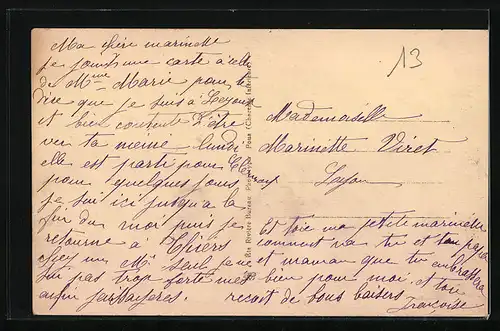 13
Ma chère marinette
je joints une carte à celle
de Mme Marie pour te
dire que je suis à Leyon
et bien contente d'être
ta meme lundi
elle est parti pour
pour quelques jours
je sui ici jusqu'a la
fin du moi puis je
retourne à Thiers
chez me Mr
sui pas trop forte mes
enfin
Mademoiselle
Marinette Viret
Leyon
Et toie ma petite marinette
comment va tu et ton papa
et maman que tu embrassera
bien pour moi, et toi
recoit de bons baisers
Françoise